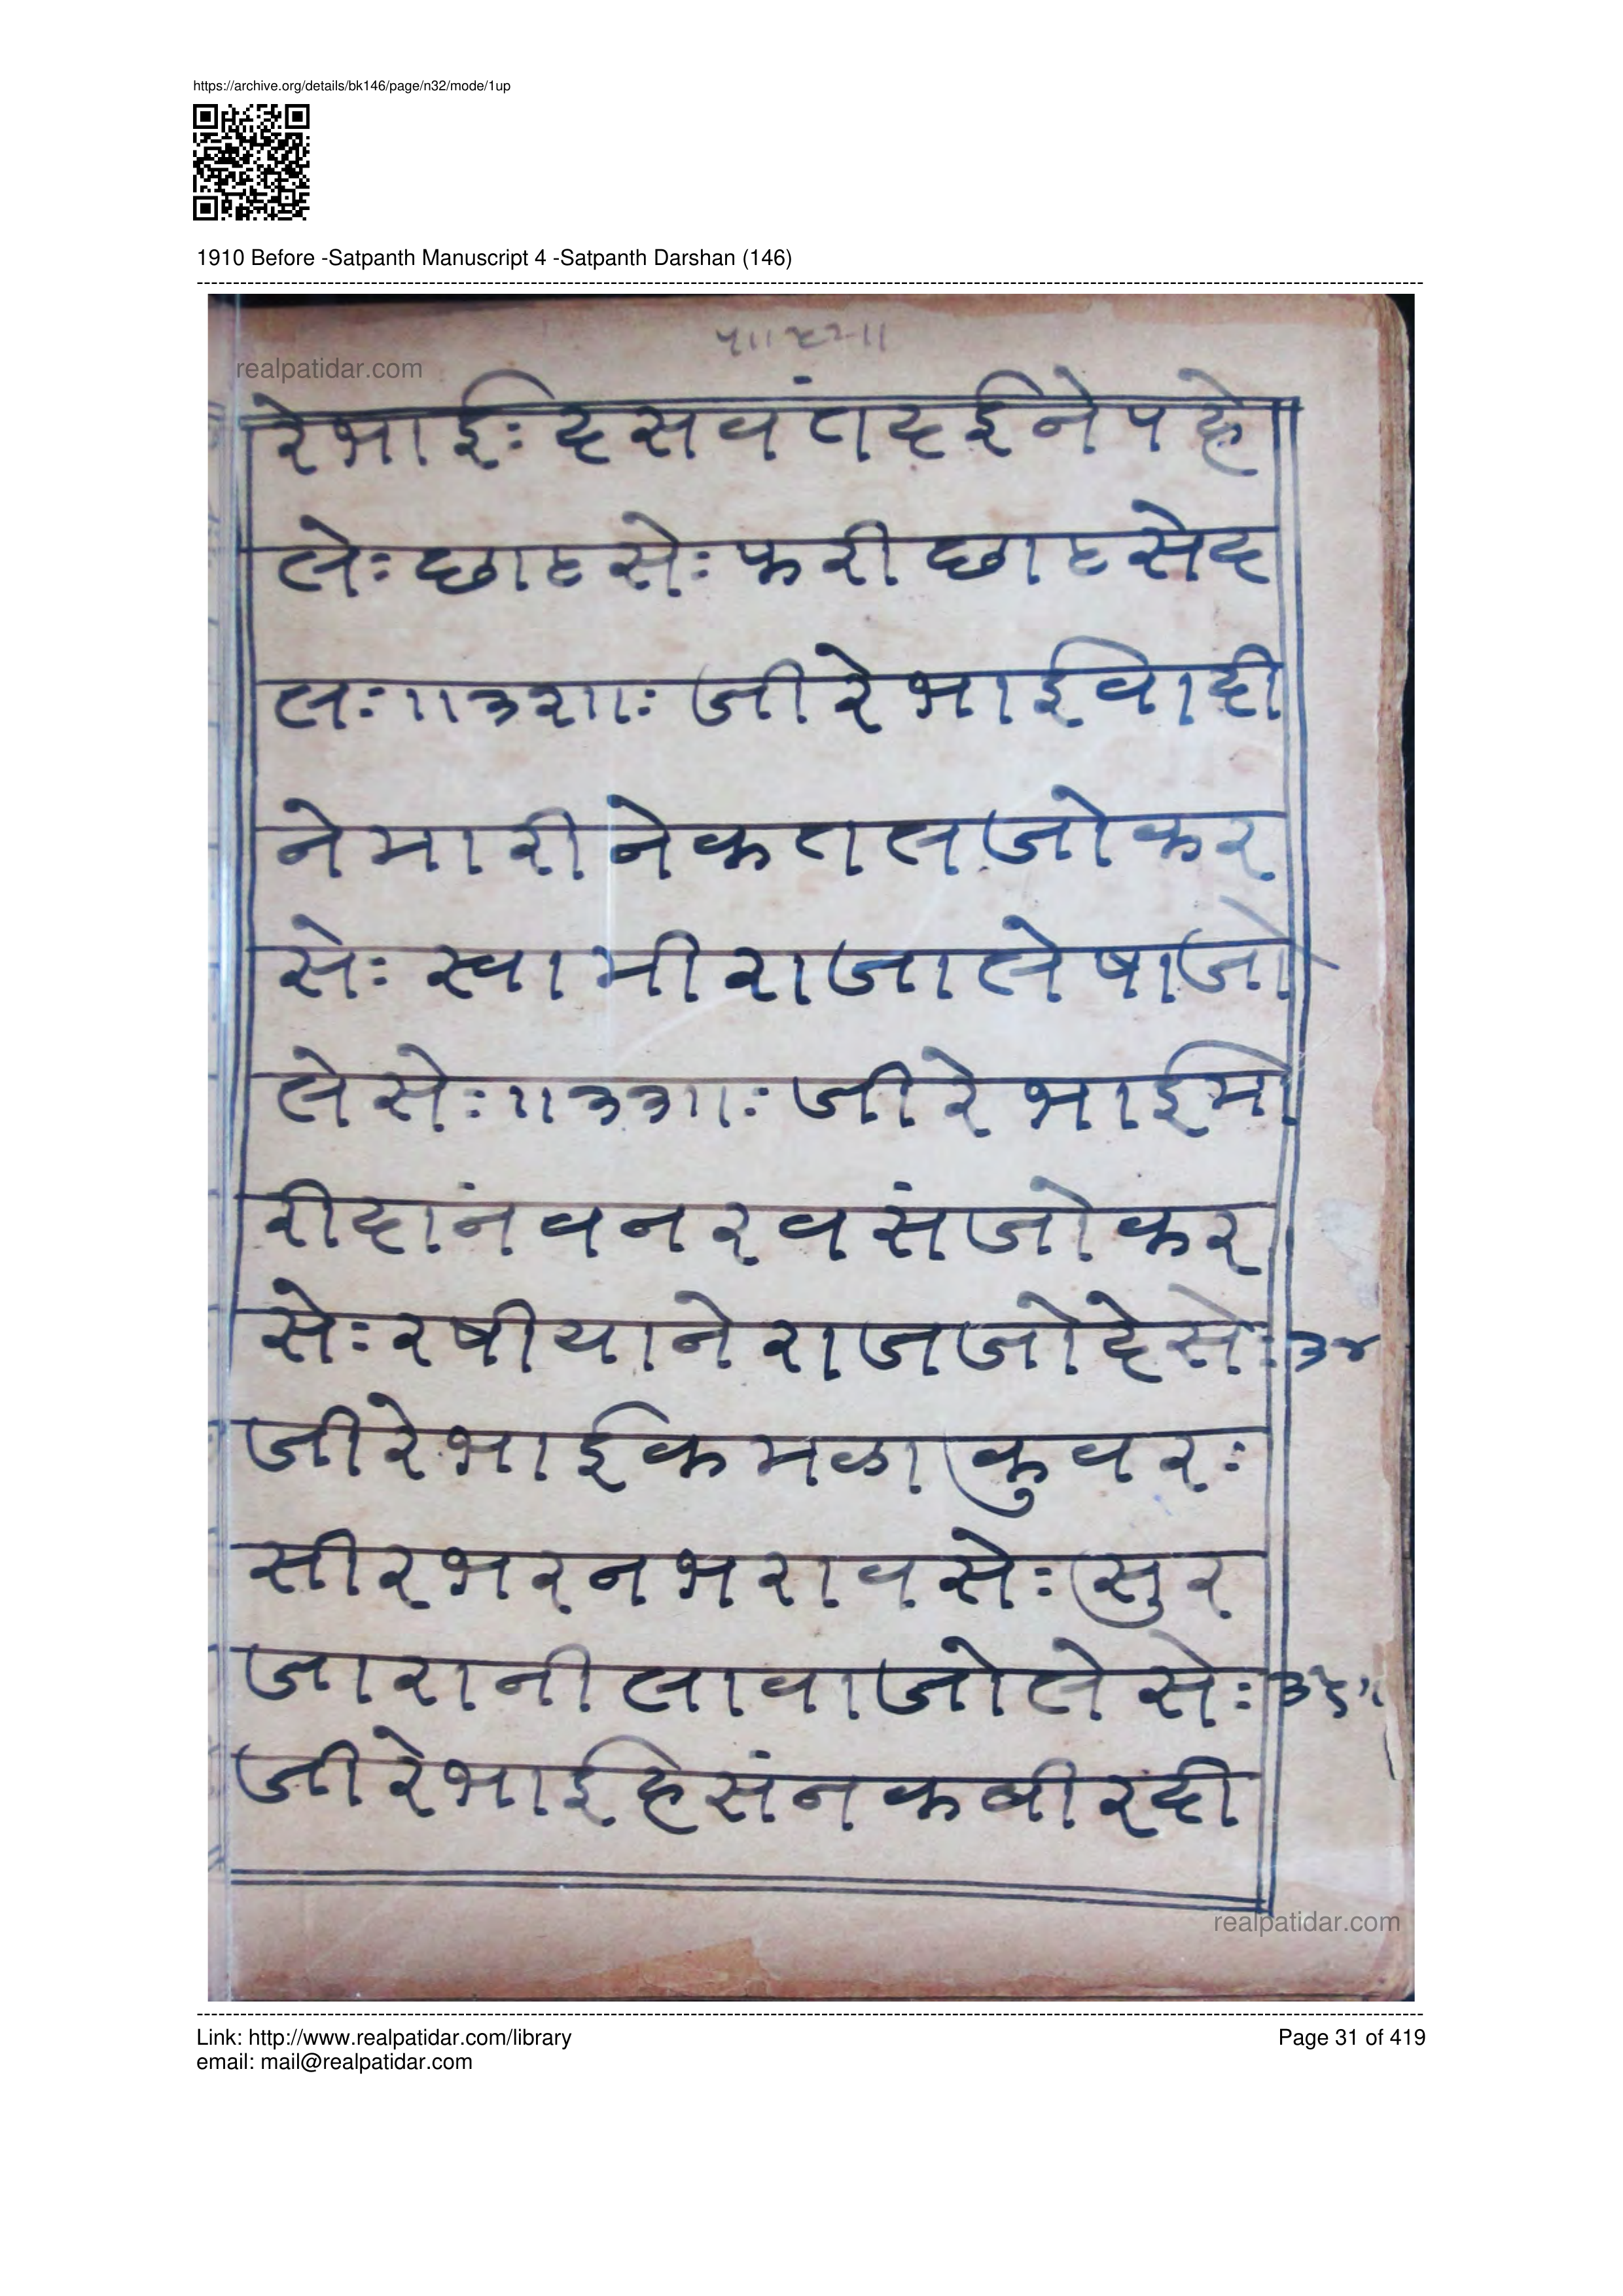 https://archive.org/details/bk146/page/n32/mode/1up
1910 Before -Satpanth Manuscript 4 -Satpanth Darshan (146)
realpatidar.com
रेभाईः दसवंतदईनेपहे
लेः छाटसेः फरीछाटसेद
लः॥३२॥ः जीरेभाईवादी
नेमारीनेकतलजोकर
सेः स्वामीराजालेषाजो
लेसेः॥३३॥ः जीरेभाईमो
रीदांनवनरवसंजोकर
सेः रषीयानेराजजोदेसेः ३४
जीरेभाईकमळाकुवरः
सीरभरनभरावसेः सुर
जारानीलावाजोलेसेः ३५॥
जीरेभाईहसंनकबीरदी
realpatidar.com
Link: http://www.realpatidar.com/library
Page 31 of 419
email: mail@realpatidar.com